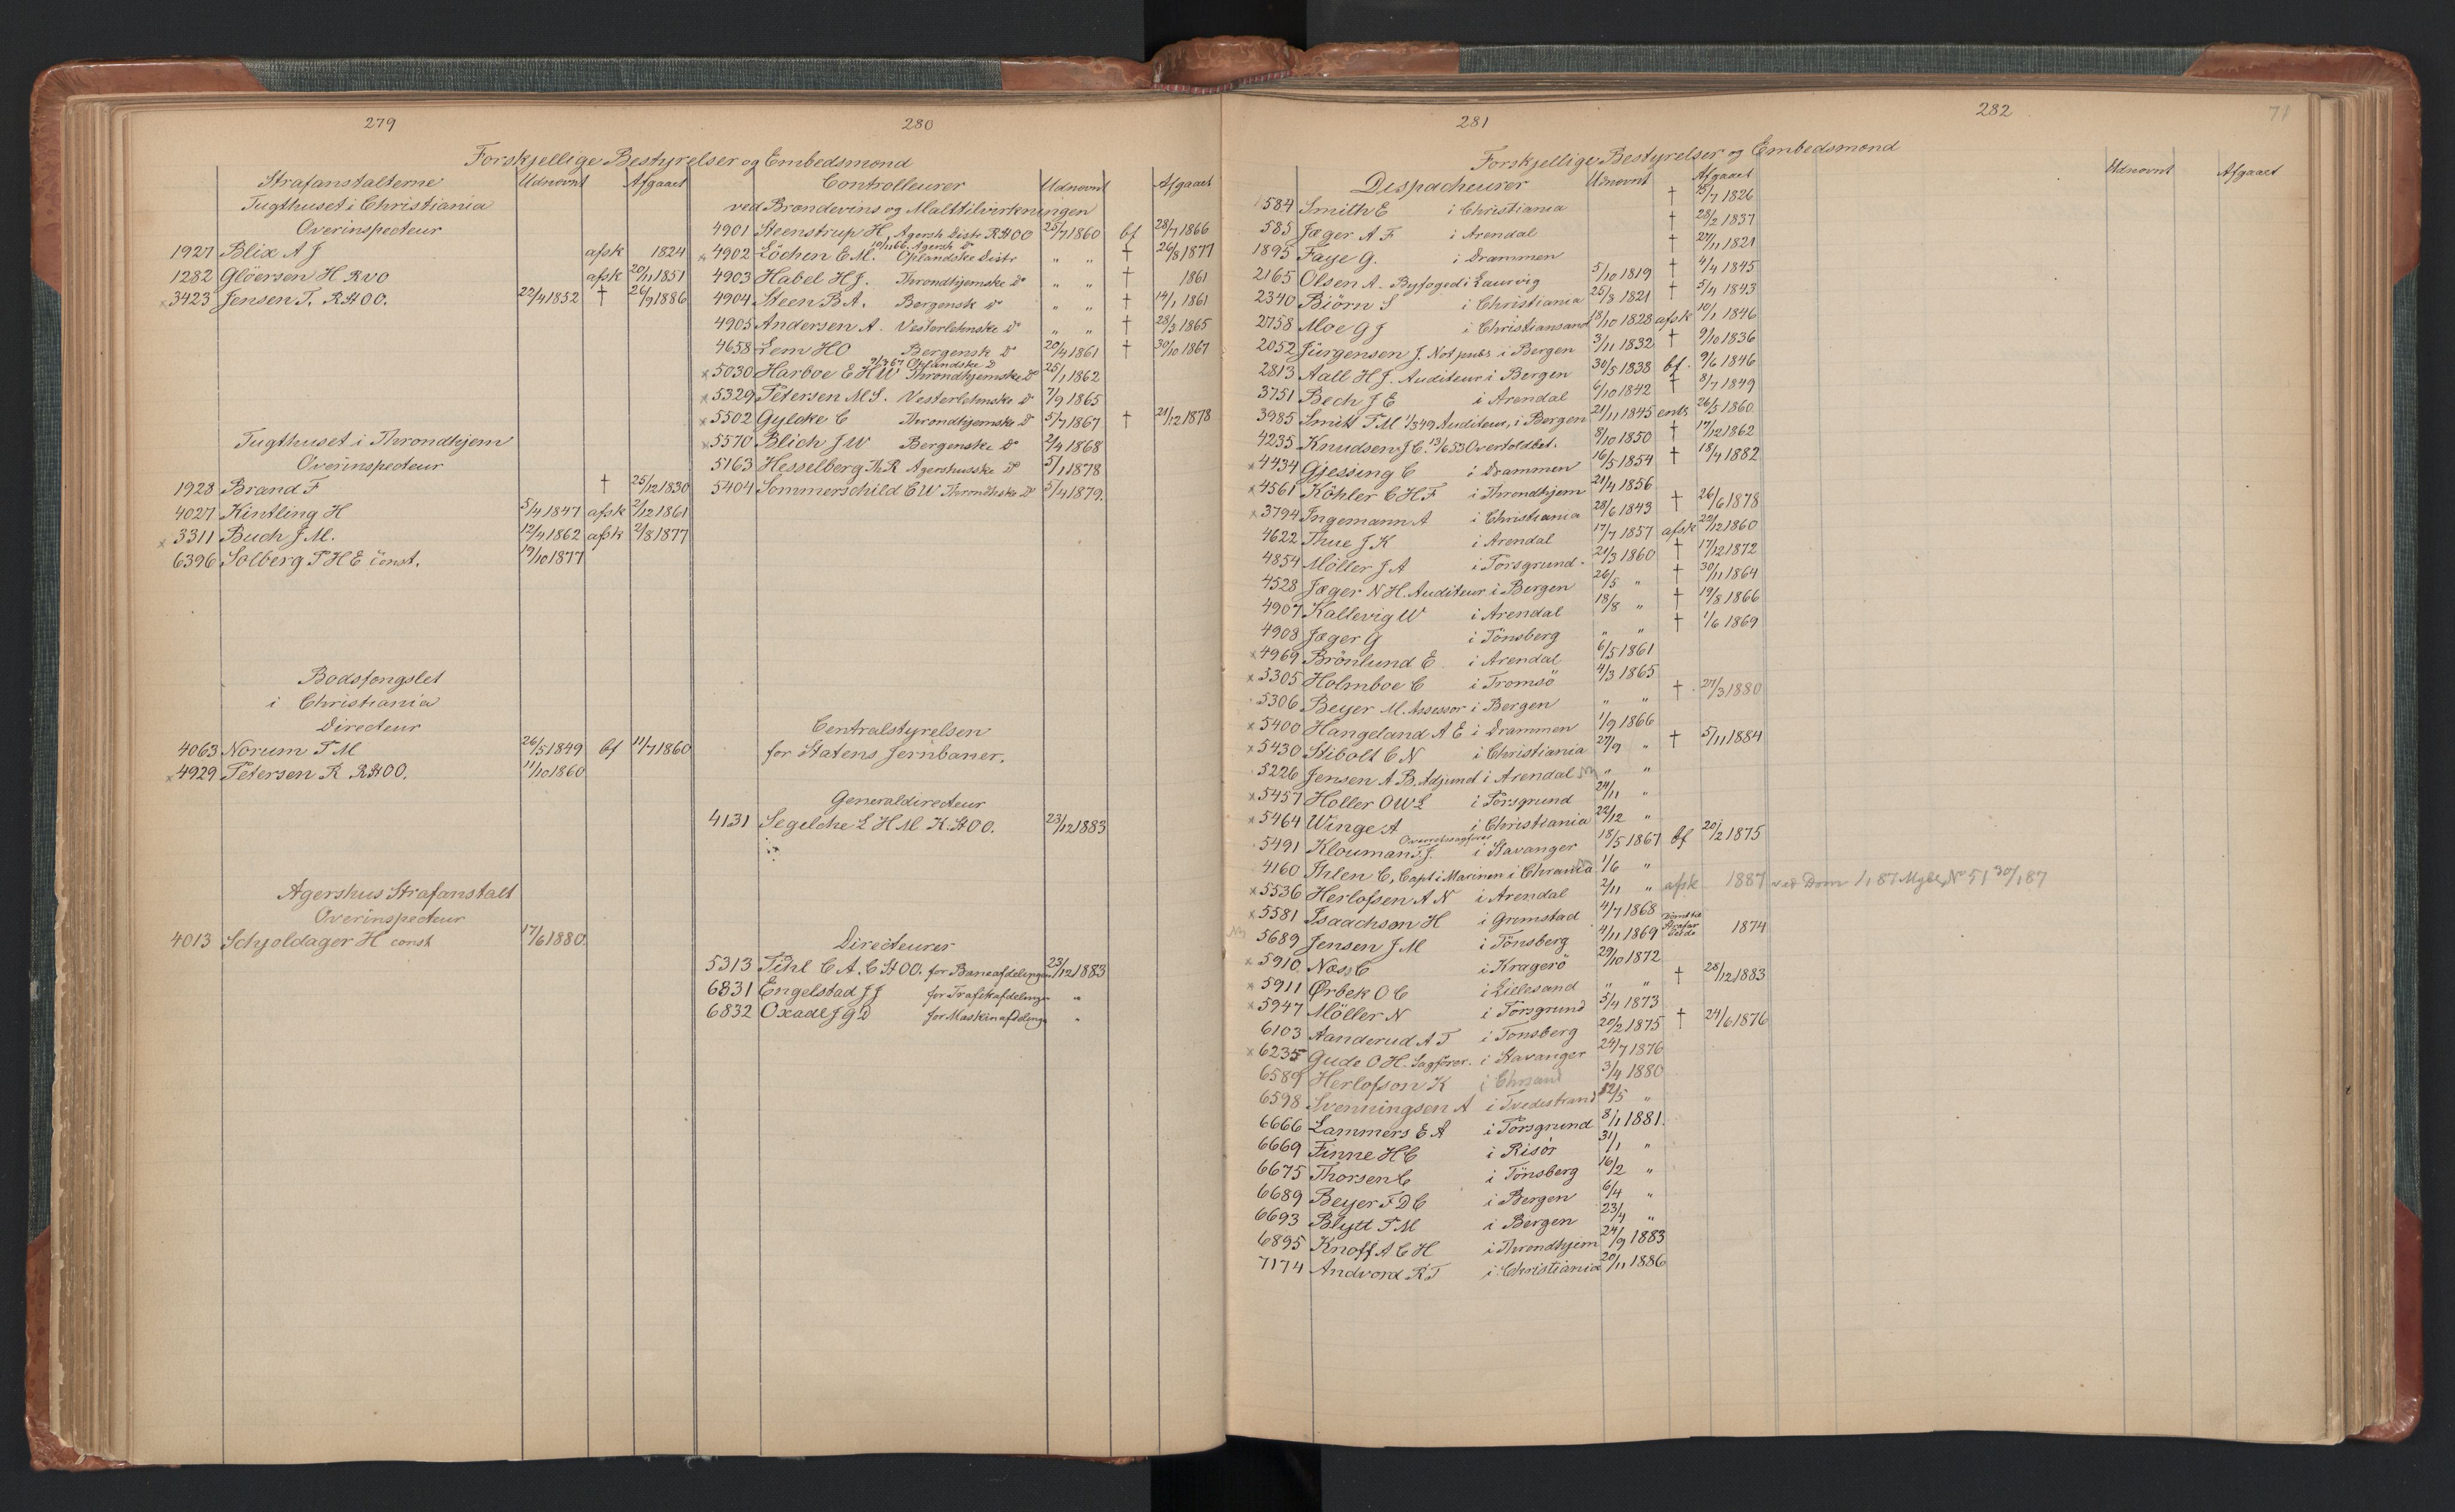 279
Forskjellige Bestyrelser og Embedsmænd
Strafanstalterne Udnævnt Afgaaet
Tugthuset i Christiania
Overinspecteur
1927 Blix A J afsk 1824
1282 Glöersen H RVO afsk 20/11 1851
x 3423 Jensen T. RStOO. 22/4 1852 † 26/9 1886
Tugthuset i Throndhjem
Overinspecteur
1928 Brand F † 25/12 1830
4027 Kintling H 5/4 1847 afsk 2/12 1861
x 3311 Buch J M. 12/4 1862 afsk 2/8 1877
6396 Solberg P H E const. 19/10 1877
Bodsfængslet
i Christiania
Directeur
4063 Norum P M 26/5 1849 bf 14/7 1860
x 4929 Petersen R RStOO. 11/10 1860
Agershus Strafanstalt
Overinspecteur
4013 Schjoldager H const 17/6 1880
280
Controlleurer Udnævnt Afgaaet
ved Brændevins og Malttilvirkningen
4901 Steenstrup H, Agersh Distr RStOO 25/7 1860 bf 28/7 1866
10/11 66 Agersh D°
x 4902 Löchen E M. Oplandske Distr " " † 26/8 1877
4903 Habel H J. Throndhjemske D° " " † 1861
4904 Steen B A. Bergensk D° " " † 14/1 1861
4905 Andersen A. Vesterlehnske D° " " † 28/3 1865
4658 Lem H O Bergensk D° 20/4 1861 † 30/10 1867
9/3 67 Oplandske D
x 5030 Harboe E H W Throndhjemske D° 25/1 1862
x 5329 Petersen M S. Vesterlehnske D° 7/9 1865
x 5502 Gylcke C Throndhjemske D° 5/7 1867 † 21/12 1878
x 5570 Blich J W Bergenske D° 2/4 1868
5163 Hesselberg Th R Agershusske D° 5/1 1878
5404 Sommerschild C W Throndhske D° 5/4 1879.
Centralstyrelsen
for Statens Jernbaner.
Generaldirecteur
4131 Segelcke L H M K.StOO. 23/12 1883
Directeurer
5313 Pihl C A. C StOO. for Baneafdelingen 23/12 1883
6831 Engelstad J J for Trafikafdelingn "
6832 Oxaal J G D for Maskinafdelingn "
281
Forskjellige Bestyrelser og Embedsmænd
Despacheurer Udnævnt Afgaaet
584 Smith E i Christiania † 15/7 1826
585 Jæger A F i Arendal † 28/2 1837
1895 Faye G. i Drammen † 27/11 1821
2165 Olsen A. Byfoged i Laurvig 5/10 1819 † 4/4 1845
2340 Biörn S i Christiania 25/8 1821 † 5/4 1843
2758 Moe G J i Christiansand 18/10 1828 afsk 10/1 1846
2052 Jürgensen J. Not pubs i Bergen 3/11 1832 † 9/10 1836
2813 Aall H J. Auditeur i Bergen 30/5 1838 bf. 9/6 1846
3751 Bech J E i Arendal 6/10 1842 † 8/7 1849
3985 Smitt P M 1/3 49 Auditeur, i Bergen 21/11 1845 ents 26/5 1860
4235 Knudsen J C. 13/6 53 Overtoldbet. 8/10 1850 † 17/12 1862
x 4434 Gjessing C i Drammen 16/5 1854 † 18/4 1882
x 4561 Köhler C H F i Throndhjem 21/4 1856
x 3794 Ingemann A i Christiania 28/6 1843 † 26/6 1878
4622 Thue J K i Arendal 17/7 1857 afsk 22/12 1860
4854 Möller J A i Porsgrund. 21/3 1860 † 17/12 1872
4528 Jæger N H. Auditeur i Bergen 26/5 " † 30/11 1864
4907 Kallevig W i Arendal 18/8 " † 19/8 1866
4908 Jæger G i Tönsberg " " † 1/6 1869
x 4969 Brönlund E. i Arendal 6/5 1861
x 5305 Holmboe C i Tromsö 4/3 1865
5306 Beyer M. Assessor i Bergen " " † 27/3 1880
x 5400 Hangeland A E i Drammen 1/9 1866
x 5430 Stibolt C N i Christiania 27/9 " † 5/11 1884
5226 Jensen A B. Adjunct i Arendal " "
x 5457 Holler O W L i Porsgrund 24/11 "
x 5464 Winge A i Christiania 22/12 "
Overretssagfører
5491 Klouman S J. i Stavanger 18/5 1867 bf 20/2 1875
4160 Ihlen C, Capt i Marinen i Chrania 1/6 "
x 5536 Herlofsen A N i Arendal 2/11 " afsk 1887 ved Dom
x 5581 Isaachsen H i Grimstad 4/7 1868
5689 Jensen J M i Tönsberg 4/11 1869 Dömt til Strafar beide 1874
x 5910 Næss C i Kragerö 29/10 1872
x 5911 Ørbek O C i Lillesand " " † 28/12 1883
x 5947 Möller N i Porsgrund 5/4 1873
6103 Aanderud A T i Tonsberg 20/2 1875 † 24/6 1876
x 6235 Gude O H. Sagfører. i Stavanger 24/7 1876
6589 Herlofson K i Chrsand 3/4 1880
6598 Svenningsen A i Tvedestrand 22/5 "
6666 Lammers E A i Porsgrund 8/1 1881.
6669 Finne H C i Risör 31/1 "
6675 Thorsen C i Tönsberg 16/2 "
6689 Beyer F D C i Bergen 6/4 "
6693 Blytt P M i Bergen 23/4 "
6895 Knoff A C H i Throndhjem 24/9 1883
7174 Andvord R T i Christiania 20/11 1886
282
71
Udnævnt Afgaaet